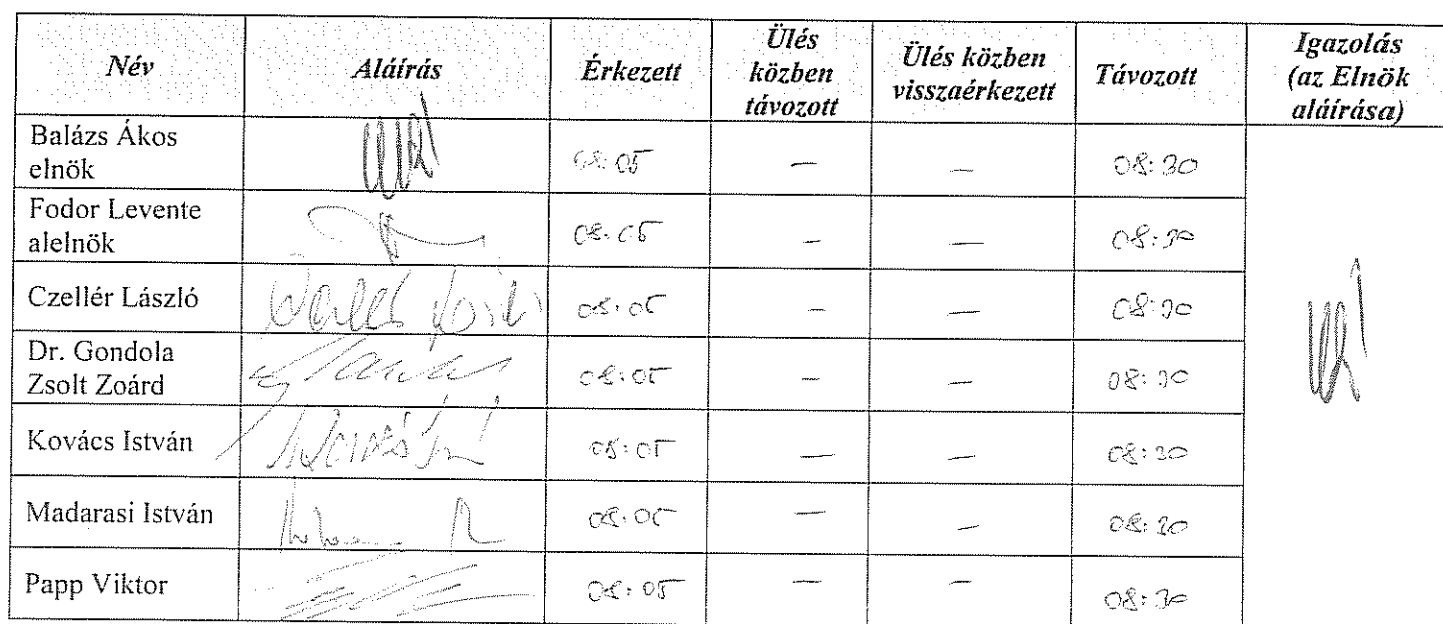 Név Aláírás Érkezett Ülés közben távozott Ülés közben visszaérkezett Távozott Igazolás (az Elnök aláírása)
Balázs Ákos
elnök 08:05 — — 08:30
Fodor Levente
alelnök 08:05 — — 08:30
Czellér László 08:05 — — 08:30
Dr. Gondola
Zsolt Zoárd 08:05 — — 08:30
Kovács István 08:05 — — 08:30
Madarasi István 08:05 — — 08:30
Papp Viktor 08:05 — — 08:30